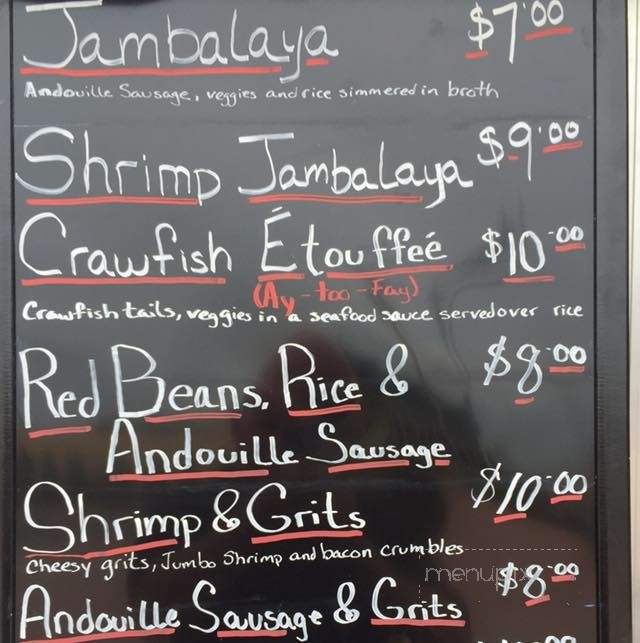 Jambalaya $7.00
Andouille Sausage, veggies and rice simmered in broth
Shrimp Jambalaya $9.00
Crawfish Étouffeé $10.00
(Ay-too-Fay)
Crawfish tails, veggies in a seafood sauce served over rice
Red Beans, Rice & $8.00
Andouille Sausage
Shrimp & Grits $10.00
Cheesy grits, Jumbo Shrimp and bacon crumbles
menupix
Andouille Sausage & Grits $8.00